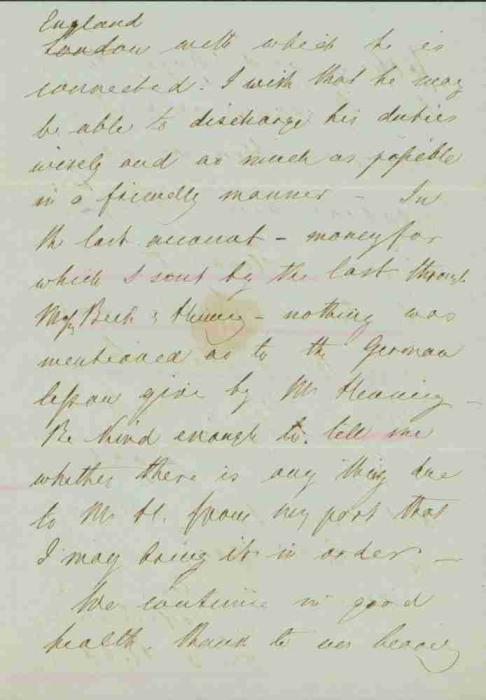 England
London with which he is
connected. I wish that he may
be able to discharge his duties
wisely and as much as possible
in a friendly manner - In
the last account - money for
which I sent by the last through
Beck & - nothing was
mentioned as to the German
lesson give by Mr Henning -
Be kind enough to tell me
whether there is any thing due
to Mr H. from my part that
I may bring it in order. -
We continue in good
health. thank to our heavenly